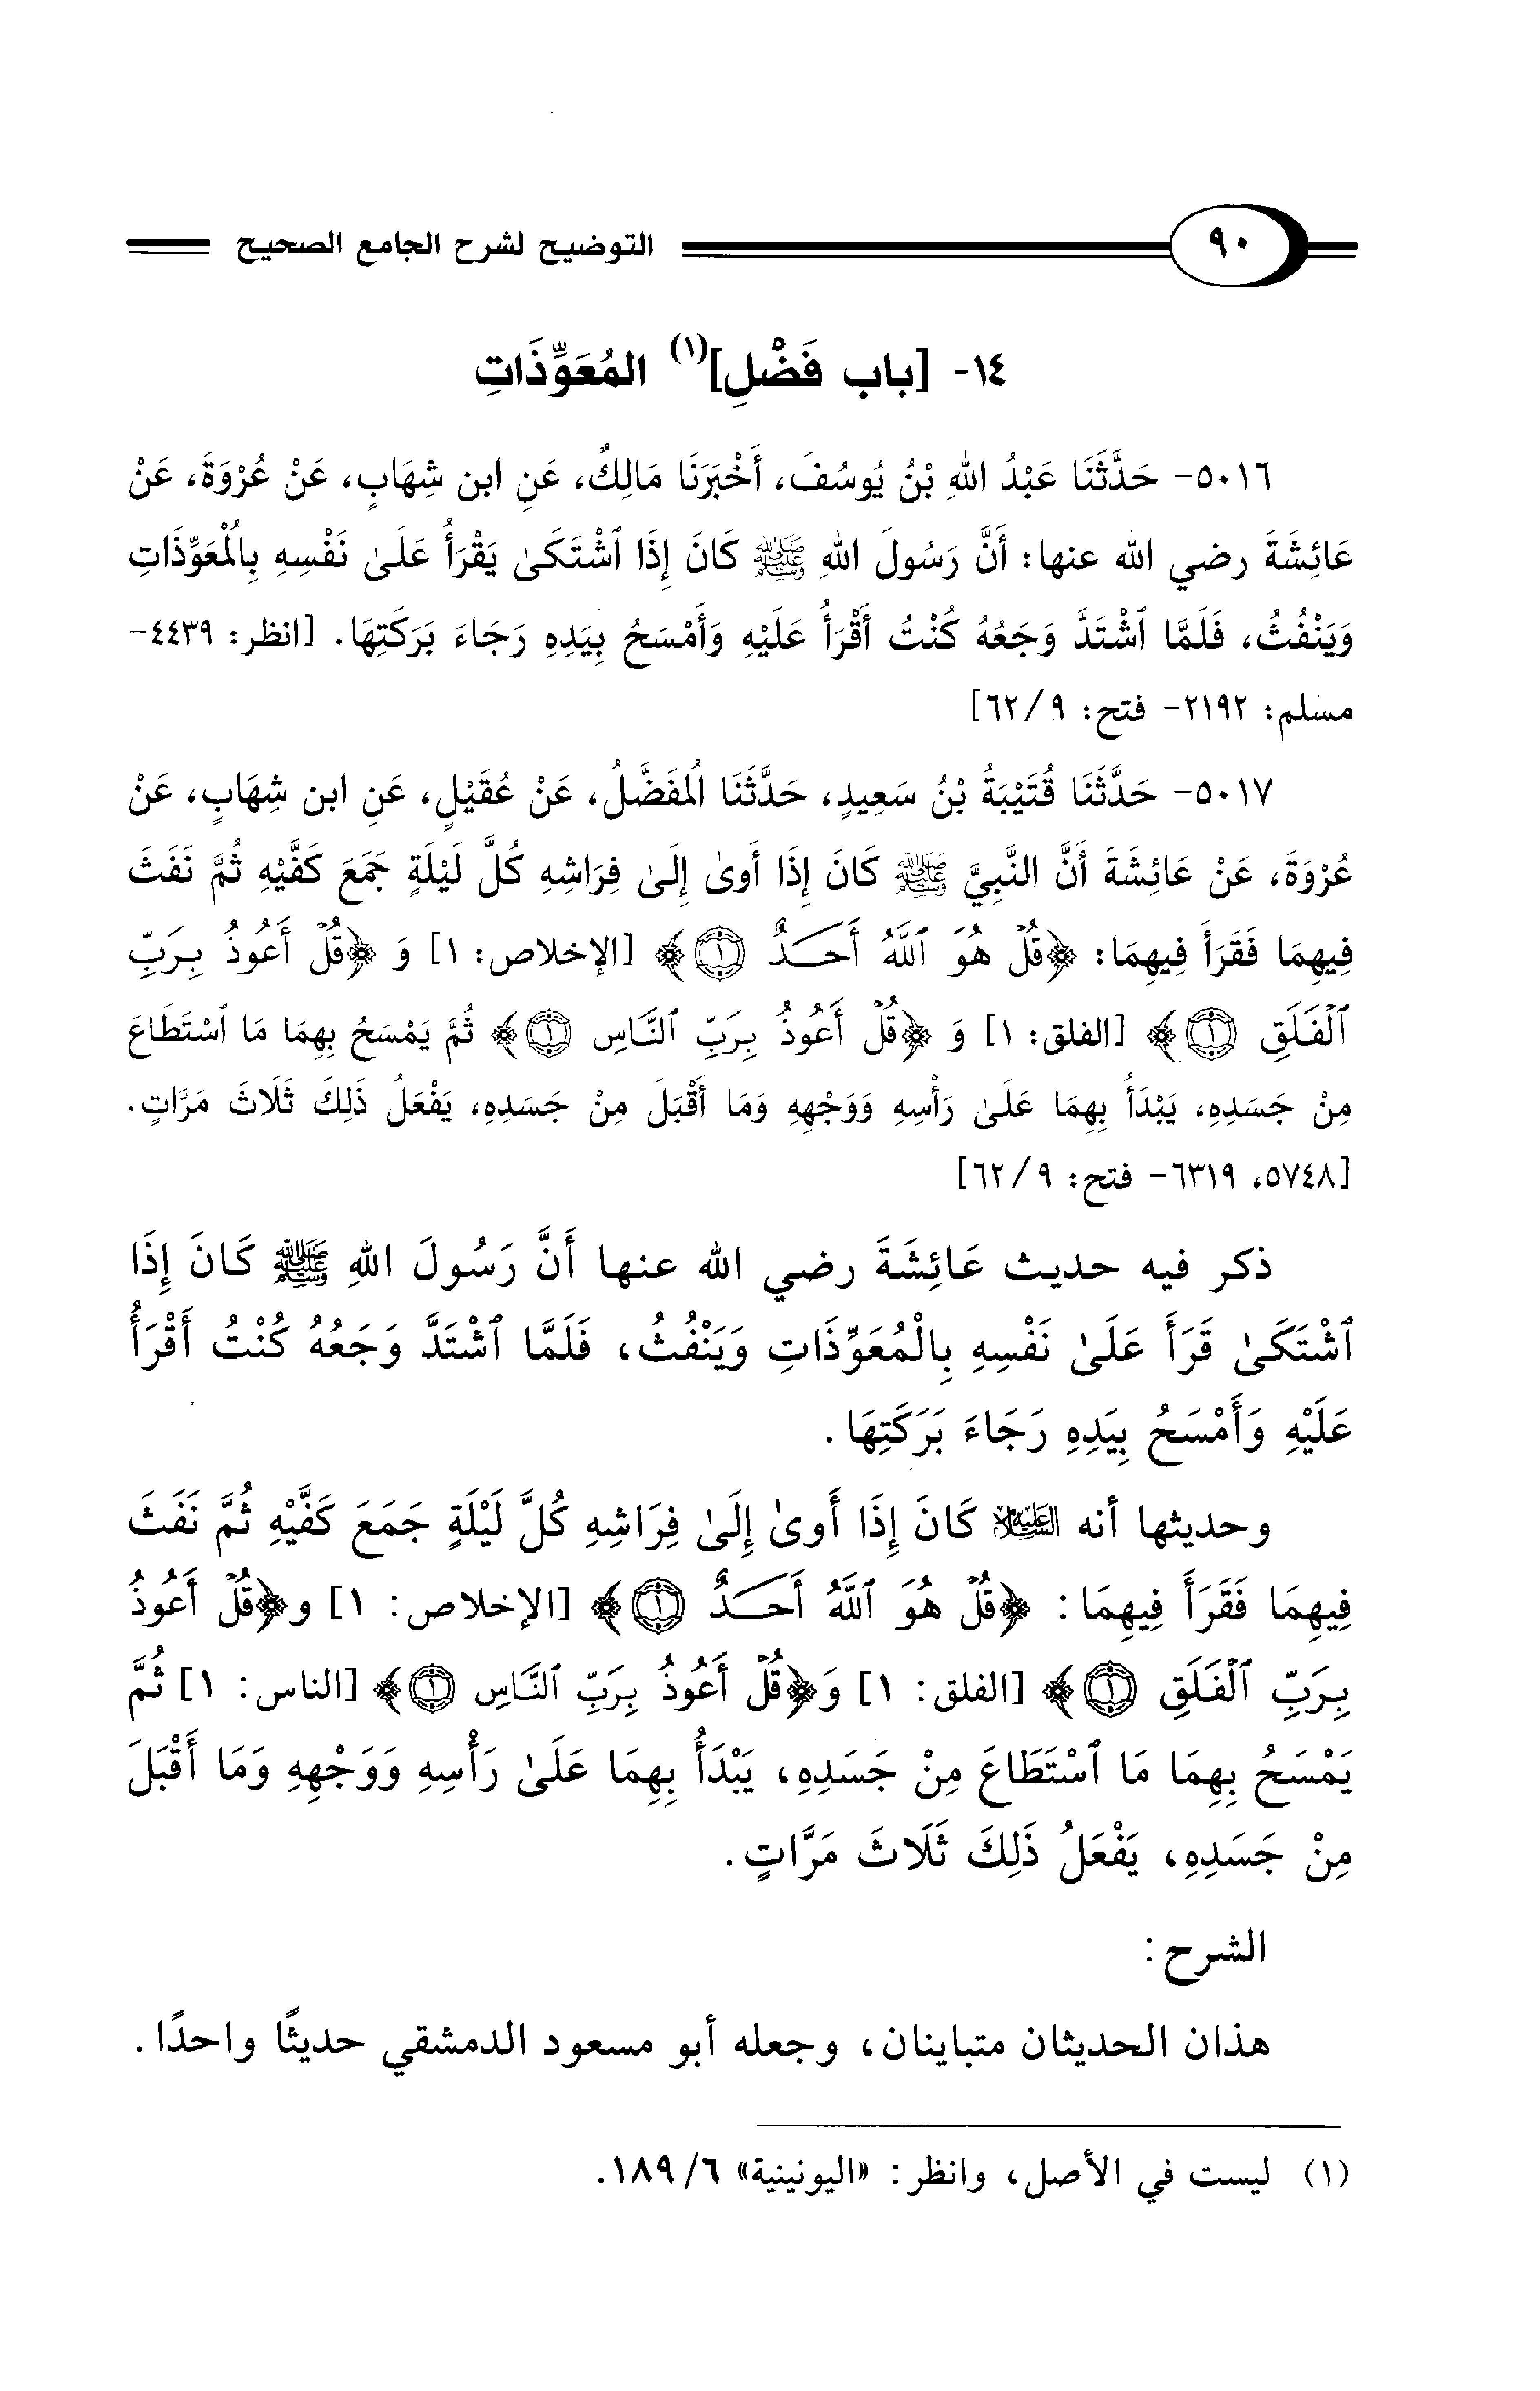 ٩٠ التوضيح لشرح الجامع الصحيح
١٤- [باب فَضْلِ](١) المُعَوِّذَاتِ
٥٠١٦- حَدَّثَنَا عَبْدُ اللهِ بْنُ يُوسُفَ، أَخْبَرَنَا مَالِكٌ، عَنِ ابن شِهَابٍ، عَنْ عُرْوَةَ، عَنْ
عَائِشَةَ رضي الله عنها: أَنَّ رَسُولَ اللهِ ﷺ كَانَ إِذَا ٱشْتَكَىٰ يَقْرَأُ عَلَىٰ نَفْسِهِ بِالْمُعَوِّذَاتِ
وَيَنْفُثُ، فَلَمَّا ٱشْتَدَّ وَجَعُهُ كُنْتُ أَقْرَأُ عَلَيْهِ وَأَمْسَحُ بِيَدِهِ رَجَاءَ بَرَكَتِهَا. [انظر: ٤٤٣٩-
مسلم: ٢١٩٢- فتح: ٩/ ٦٢]
٥٠١٧- حَدَّثَنَا قُتَيْبَةُ بْنُ سَعِيدٍ، حَدَّثَنَا الْمُفَضَّلُ، عَنْ عُقَيْلٍ، عَنِ ابن شِهَابٍ، عَنْ
عُرْوَةَ، عَنْ عَائِشَةَ أَنَّ النَّبِيَّ ﷺ كَانَ إِذَا أَوىٰ إِلَىٰ فِرَاشِهِ كُلَّ لَيْلَةٍ جَمَعَ كَفَّيْهِ ثُمَّ نَفَثَ
فِيهِمَا فَقَرَأَ فِيهِمَا: ﴿قُلْ هُوَ ٱللَّهُ أَحَدٌ ١﴾ [الإخلاص: ١] وَ ﴿قُلْ أَعُوذُ بِرَبِّ
ٱلْفَلَقِ ١﴾ [الفلق: ١] وَ ﴿قُلْ أَعُوذُ بِرَبِّ ٱلنَّاسِ ١﴾ ثُمَّ يَمْسَحُ بِهِمَا مَا ٱسْتَطَاعَ
مِنْ جَسَدِهِ، يَبْدَأُ بِهِمَا عَلَىٰ رَأْسِهِ وَوَجْهِهِ وَمَا أَقْبَلَ مِنْ جَسَدِهِ، يَفْعَلُ ذَلِكَ ثَلَاثَ مَرَّاتٍ.
[٥٧٤٨، ٦٣١٩- فتح: ٩/ ٦٢]
ذكر فيه حديث عَائِشَةَ رضي الله عنها أَنَّ رَسُولَ اللهِ ﷺ كَانَ إِذَا
ٱشْتَكَىٰ قَرَأَ عَلَىٰ نَفْسِهِ بِالْمُعَوِّذَاتِ وَيَنْفُثُ، فَلَمَّا ٱشْتَدَّ وَجَعُهُ كُنْتُ أَقْرَأُ
عَلَيْهِ وَأَمْسَحُ بِيَدِهِ رَجَاءَ بَرَكَتِهَا.
وحديثها أنه عليه السلام كَانَ إِذَا أَوىٰ إِلَىٰ فِرَاشِهِ كُلَّ لَيْلَةٍ جَمَعَ كَفَّيْهِ ثُمَّ نَفَثَ
فِيهِمَا فَقَرَأَ فِيهِمَا: ﴿قُلْ هُوَ ٱللَّهُ أَحَدٌ ١﴾ [الإخلاص: ١] و﴿قُلْ أَعُوذُ
بِرَبِّ ٱلْفَلَقِ ١﴾ [الفلق: ١] وَ﴿قُلْ أَعُوذُ بِرَبِّ ٱلنَّاسِ ١﴾ [الناس: ١] ثُمَّ
يَمْسَحُ بِهِمَا مَا ٱسْتَطَاعَ مِنْ جَسَدِهِ، يَبْدَأُ بِهِمَا عَلَىٰ رَأْسِهِ وَوَجْهِهِ وَمَا أَقْبَلَ
مِنْ جَسَدِهِ، يَفْعَلُ ذَلِكَ ثَلَاثَ مَرَّاتٍ.
الشرح:
هذان الحديثان متباينان، وجعله أبو مسعود الدمشقي حديثًا واحدًا.
(١) ليست في الأصل، وانظر: «اليونينية» ٦/ ١٨٩.